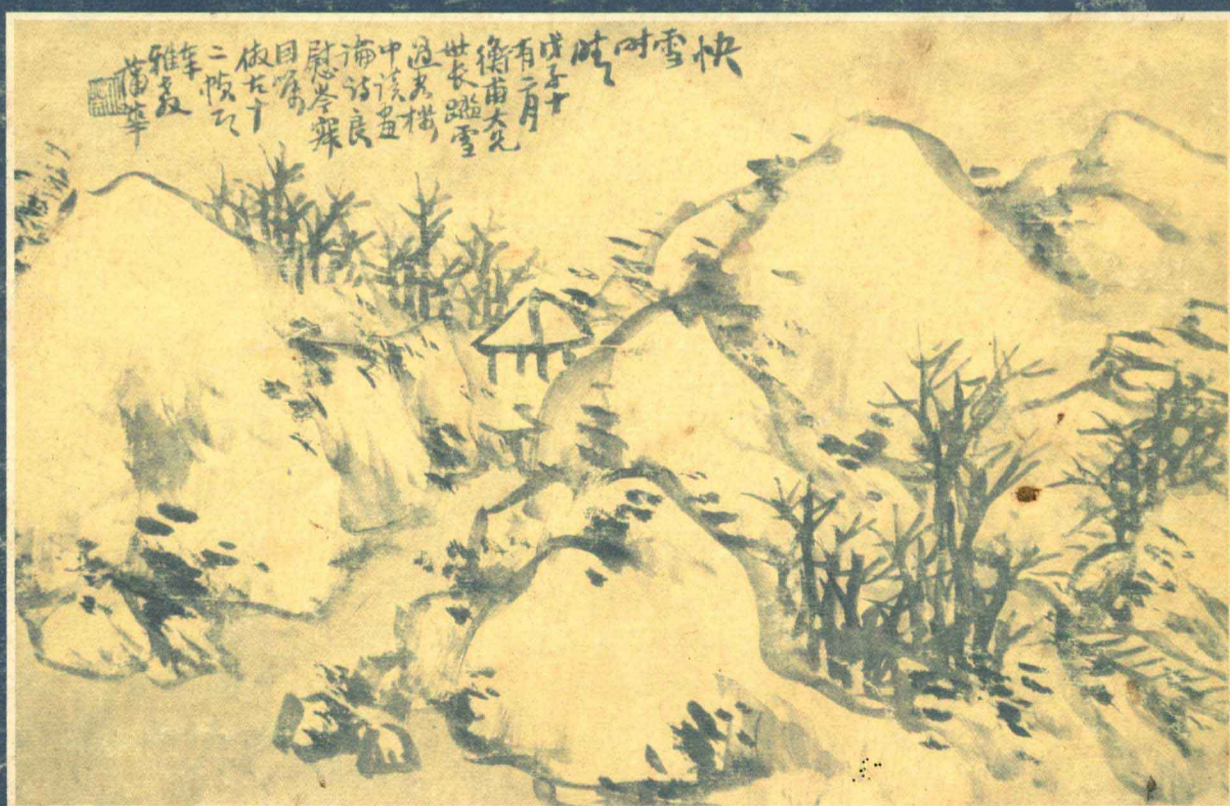 快
雪
时
晴
戊子十
有二月
衡甫大兄
世长踏雪
过老楼
中谈画
论诗良
慰岑寂
因嘱
仿古十
二帧即
奉
雅教
蒲华